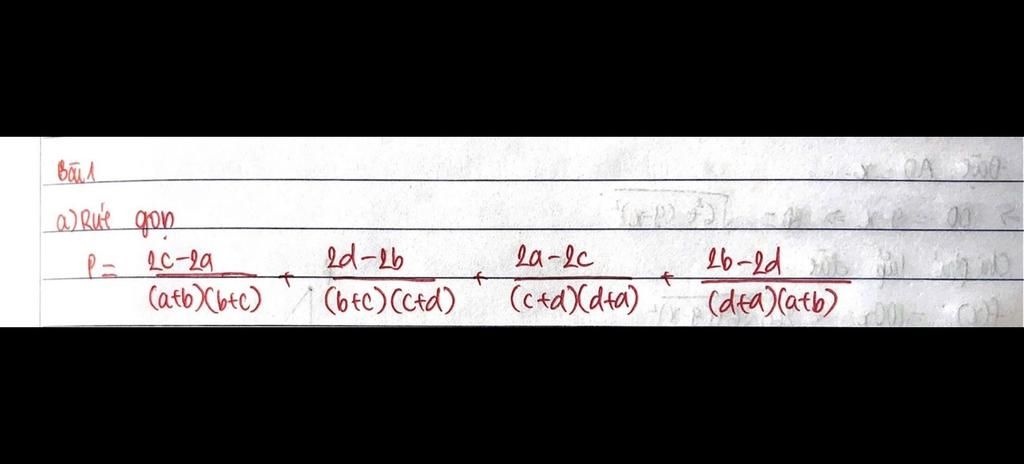 Bài 1
a) Rút gọn
P = 2c-2a/(a+b)(b+c) + 2d-2b/(b+c)(c+d) + 2a-2c/(c+d)(d+a) + 2b-2d/(d+a)(a+b)